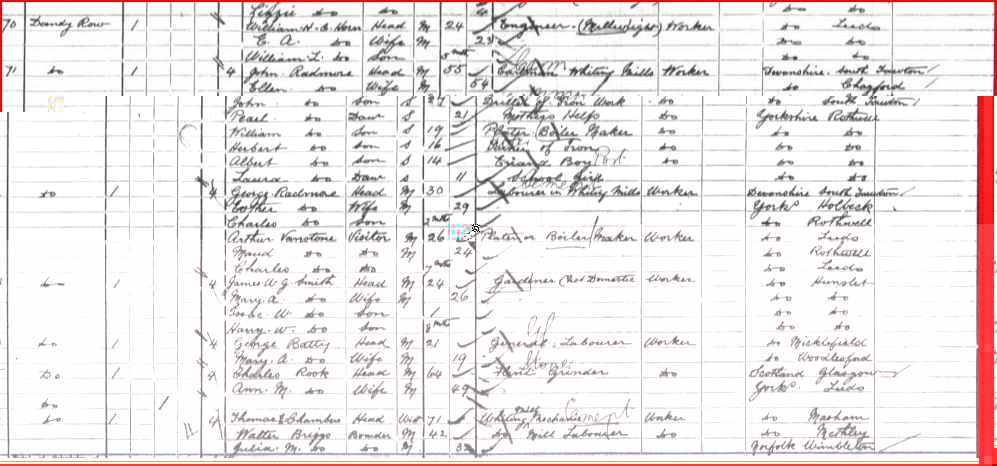 Lizzie do do 4
70 Dandy Row 1 William H. E. Horn Head M 24 Engineer (Millwright) Worker do Leeds
E. A. do Wife M 23 do do
William L. do Son 5 mths do do
71 do 1 4 John Radmore Head M 55 Whiting Mills Worker Devonshire South Tawton
Ellen do Wife M 54 do Chagford
John do Son S 27 Driller of Iron Work do do South Tawton
Pearl do Daur S 21 Mothers Help do Yorkshire Rothwell
William do Son S 19 Plater (Boiler Maker do do do
Herbert do Son S 16 of Iron do do do
Albert do Son S 14 Errand Boy Port do do do
Laura do Daur S 11 School Girl do do
do 1 4 George Radmore Head M 30 Labourer in Whiting Mills Worker Devonshire South Tawton
Esther do Wife M 29 Yorks Holbeck
Charles do Son 2 mths do Rothwell
Arthur Visitor M 26 Plater or Boiler Maker Worker do Leeds
Maud do do M 24 do Rothwell
Charles do do 7 mths do Leeds
do 4 James W. G. Smith Head M 24 Gardener (Not Domestic Worker do Hunslet
Mary. A. do Wife M 26 do do
W. do Son 1 do do
Harry. W. do Son 8 mths do do
do 1 4 George Batty Head M 21 General Labourer Worker do Micklefield
Mary. A. do Wife M 19 Stone do Woodlesford
Do 1 4 Charles Rook Head M 64 Flint Grinder do Scotland Glasgow
Ann. M. do Wife M 49 Yorks Leeds
do 1 /
do 1 4 Thomas E Chambers Head Wid 71 Whiting Mechanic Cement Worker do Masham
Walter Briggs Boarder M 42 do Mill Labourer do do Methley
Julia. M. do do M Norfolk Wimbleton